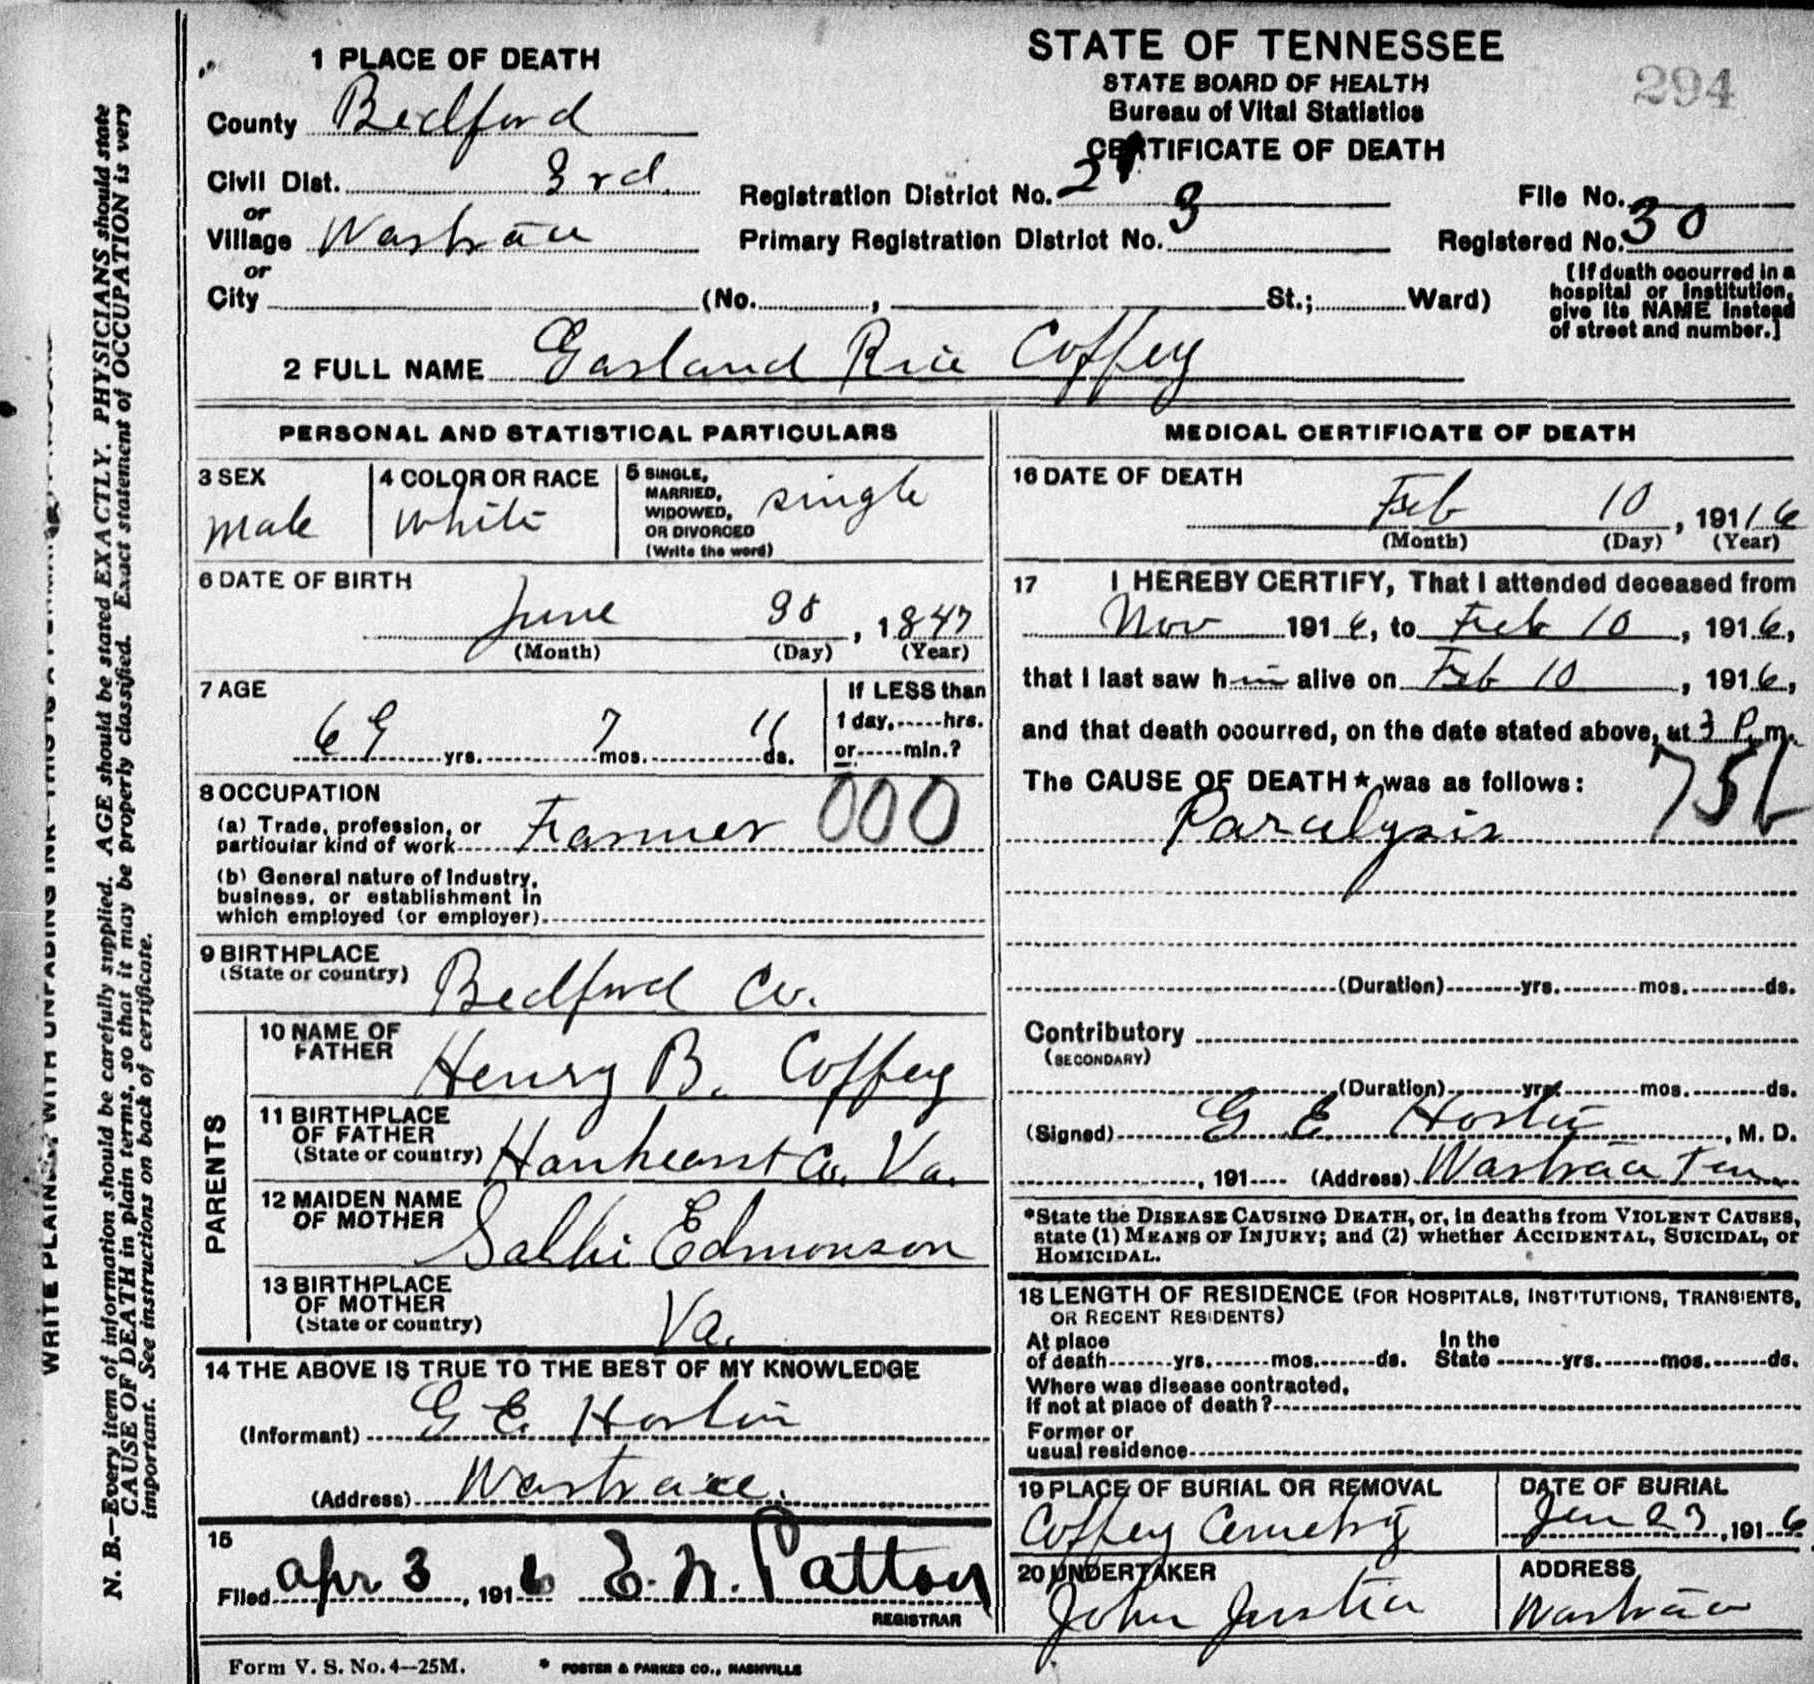 STATE OF TENNESSEE
STATE BOARD OF HEALTH
Bureau of Vital Statistics
CERTIFICATE OF DEATH
294
1 PLACE OF DEATH
County Bedford
Civil Dist. 3rd.
or
Village Wartrace
or
City (No. , St.; Ward)
Registration District No. 21
Primary Registration District No. 3
File No.
Registered No. 30
[If death occurred in a
hospital or institution,
give its NAME instead
of street and number.]
2 FULL NAME Garland Rice Coffey
PERSONAL AND STATISTICAL PARTICULARS
3 SEX
male
4 COLOR OR RACE
White
5 SINGLE,
MARRIED,
WIDOWED,
OR DIVORCED
(Write the word)
single
6 DATE OF BIRTH
June 30, 1847
(Month) (Day) (Year)
7 AGE
69 yrs. 7 mos. 11 ds.
If LESS than
1 day,-----hrs.
or-----min.?
8 OCCUPATION
(a) Trade, profession, or
particular kind of work Farmer 000
(b) General nature of Industry,
business, or establishment in
which employed (or employer)
9 BIRTHPLACE
(State or country) Bedford Co.
PARENTS
10 NAME OF
FATHER Henry B. Coffey
11 BIRTHPLACE
OF FATHER
(State or country) Co. Va.
12 MAIDEN NAME
OF MOTHER Sallie Edmonson
13 BIRTHPLACE
OF MOTHER
(State or country) Va.
14 THE ABOVE IS TRUE TO THE BEST OF MY KNOWLEDGE
(Informant) G E
(Address) Wartrace.
15
Filed Apr 3, 1916 E. N. Patton
REGISTRAR
MEDICAL CERTIFICATE OF DEATH
16 DATE OF DEATH
Feb 10, 1916
(Month) (Day) (Year)
17 I HEREBY CERTIFY, That I attended deceased from
Nov 1916, to Feb 10, 1916,
that I last saw him alive on Feb 10, 1916,
and that death occurred, on the date stated above, at 3 P.m.
The CAUSE OF DEATH* was as follows:
Paralysis
(Duration) yrs. mos. ds.
Contributory
(SECONDARY)
(Duration) yrs. mos. ds.
(Signed) G E , M. D.
, 191 (Address) Wartrace Tenn
*State the DISEASE CAUSING DEATH, or, in deaths from VIOLENT CAUSES,
state (1) MEANS OF INJURY; and (2) whether ACCIDENTAL, SUICIDAL, or
HOMICIDAL.
18 LENGTH OF RESIDENCE (FOR HOSPITALS, INSTITUTIONS, TRANSIENTS,
OR RECENT RESIDENTS)
At place
of death yrs. mos. ds.
In the
State yrs. mos. ds.
Where was disease contracted,
If not at place of death?
Former or
usual residence
19 PLACE OF BURIAL OR REMOVAL
Coffey Cemetry
DATE OF BURIAL
23, 1916
20 UNDERTAKER
John Justice
ADDRESS
Wartrace
Form V. S. No. 4—25M.
* FOSTER & PARKES CO., NASHVILLE
N. B.—Every item of information should be carefully supplied. AGE should be stated EXACTLY. PHYSICIANS should state
CAUSE OF DEATH in plain terms, so that it may be properly classified. Exact statement of OCCUPATION is very
important. See instructions on back of certificate.
WRITE PLAINLY, WITH UNFADING INK—THIS IS A